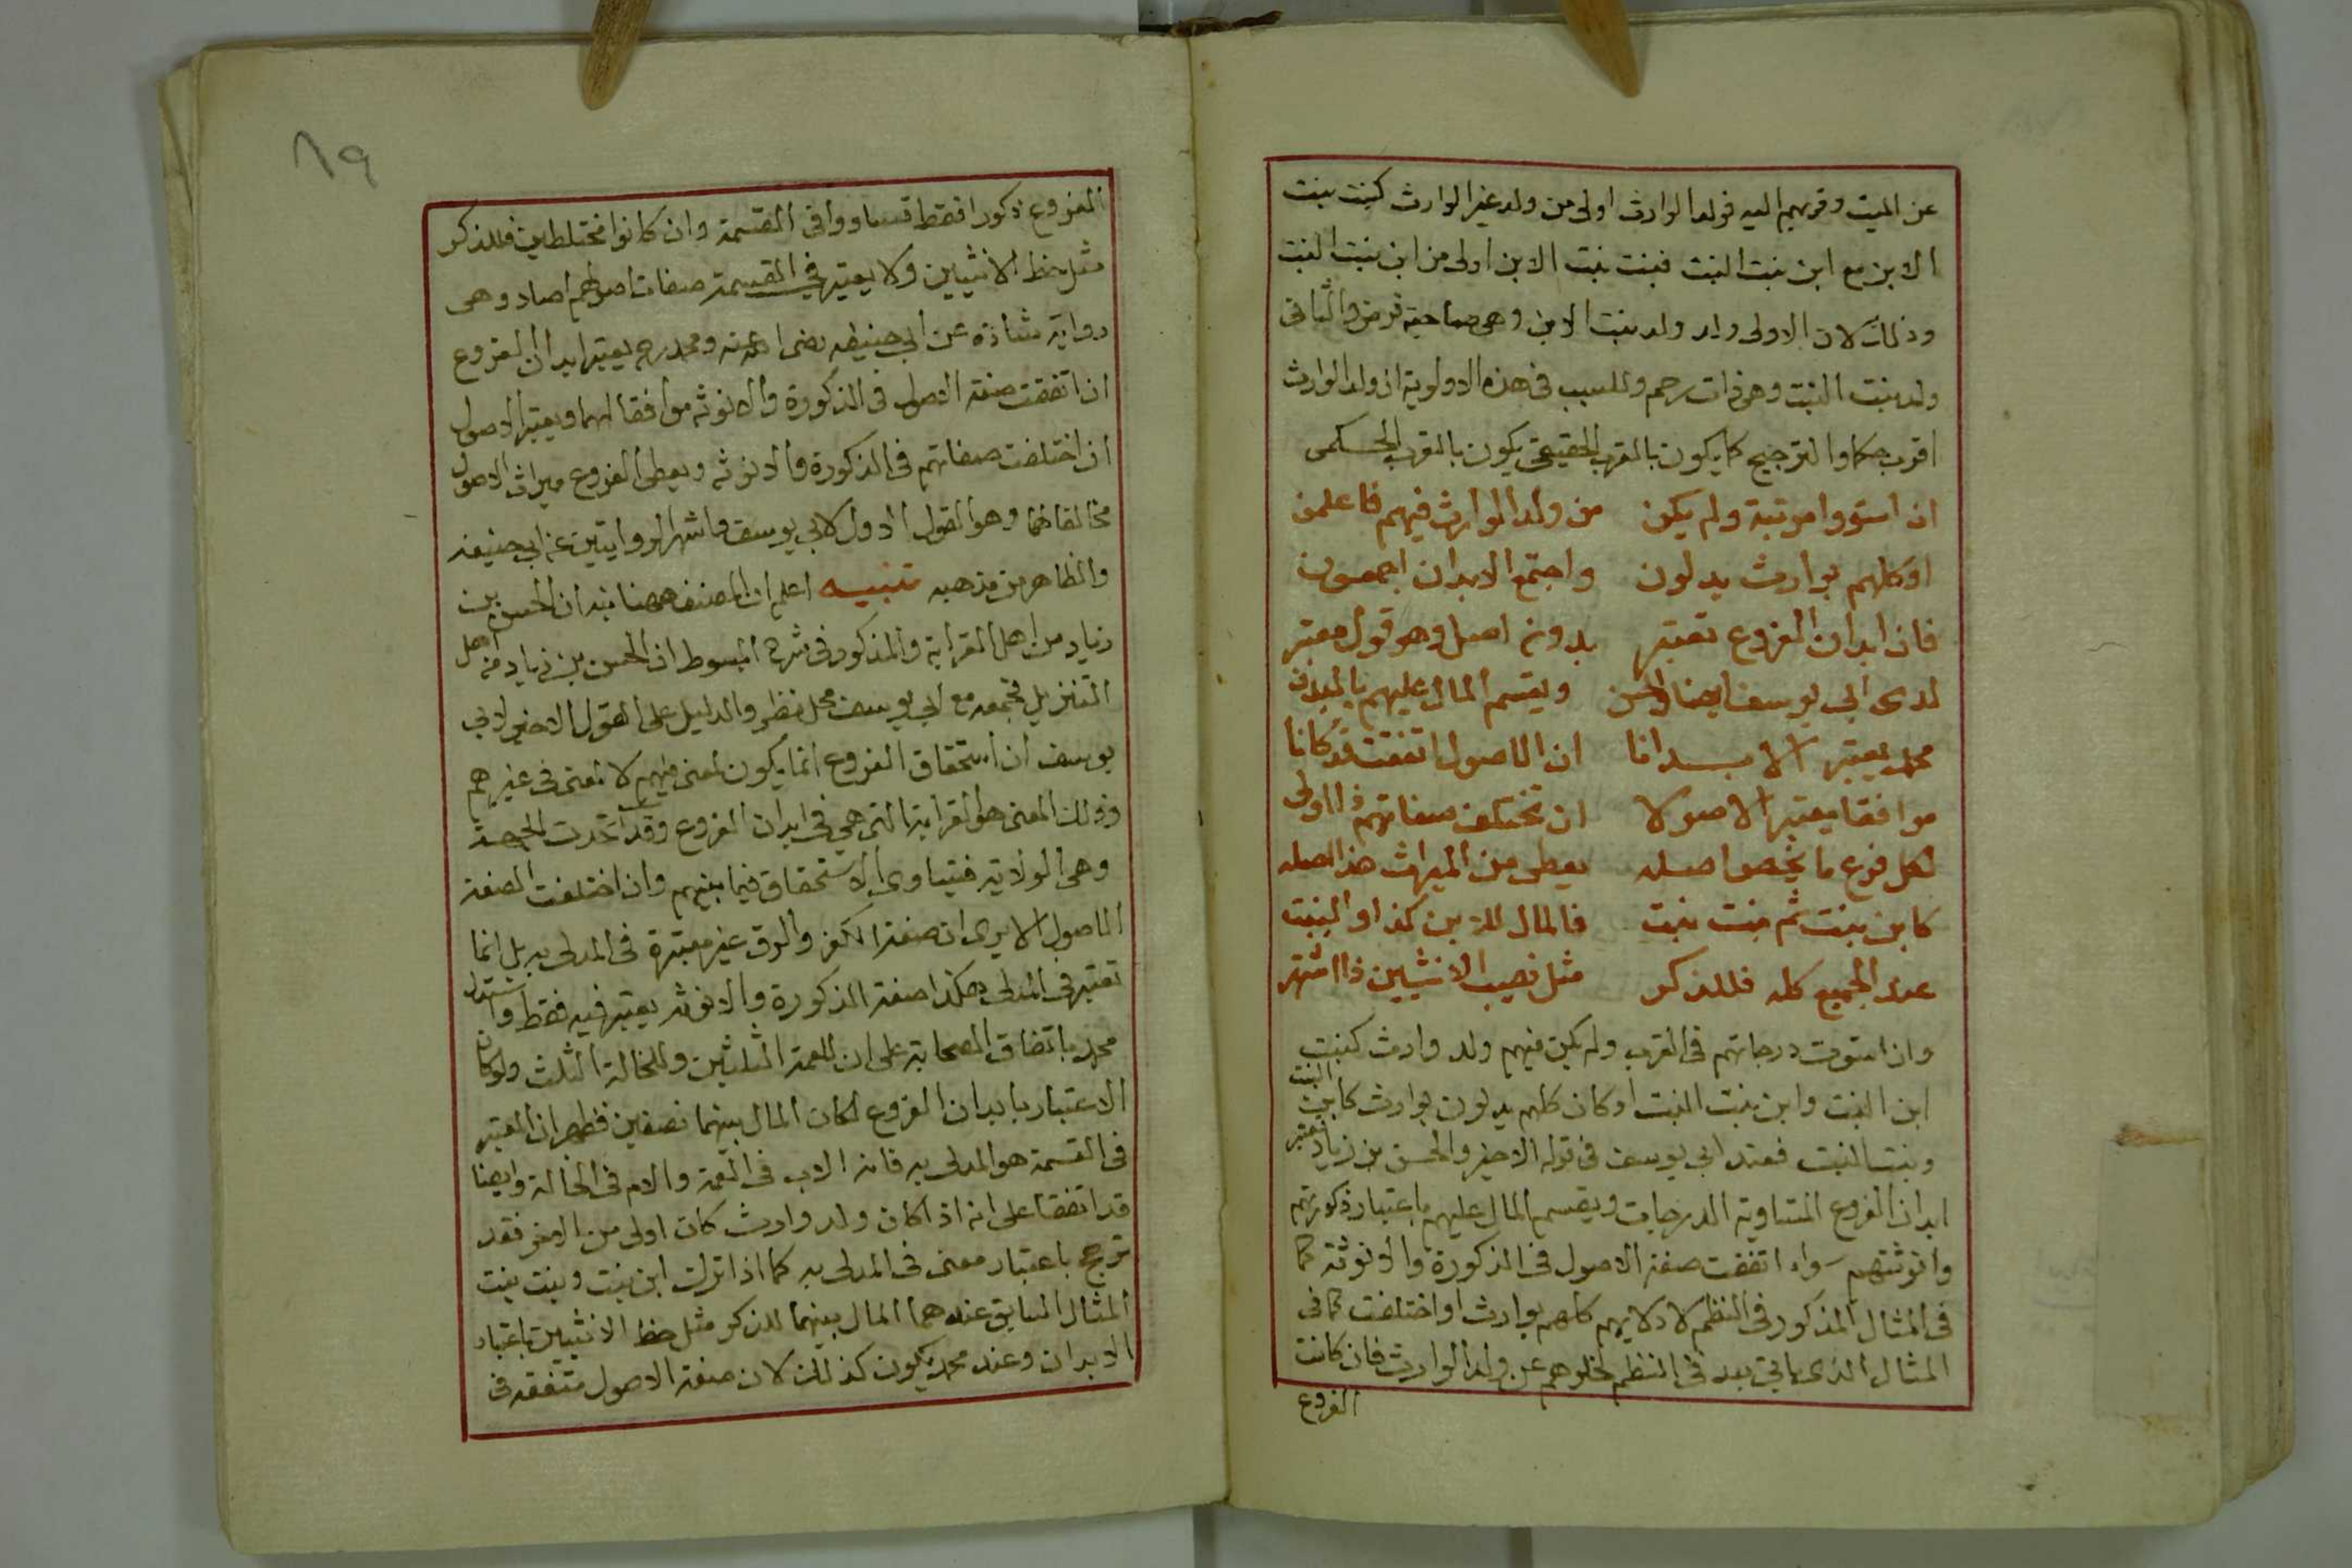 عن الميت وقربهم اليه فولد الوارث اولى من ولد غير الوارث كبنت بنت
الابن مع ابن بنت البنت فبنت بنت الابن اولى من ابن بنت البنت
وذلك لان الاولى ولد ولد بنت الابن وهى صاحبة فرض والثانى
ولد بنت البنت وهى ذات رحم وللسبب فى هذه الاولوية ان ولد الوارث
اقرب حكما والترجيح كما يكون بالقرب الحقيقى يكون بالقرب الحكمى
ان استووا مرتبة ولم يكن من ولد الوارث فيهم فاعلمن
او كلهم بوارث يدلون واجتمع الابدان اجمعون
فان ابدان الفروع تعتبر بدون اصل وهو قول معتبر
لدى ابى يوسف ايضا والحسن ويقسم المال عليهم بالبدن
محمد يعتبر الابدانا ان الاصول اتفقت قد كانا
موافقا يعتبر الاصولا ان تختلف صفاتهم ذا اولى
لكل فرع ما يخص اصله يعطى من الميراث هذا اصله
كابن بنت ثم بنت بنت فالمال للابن كذا والبنت
عند الجميع كله فللذكر مثل نصيب الانثيين ذا اشتهر
وان استوت درجاتهم فى القرب ولم يكن فيهم ولد وارث كبنت
ابن البنت وابن بنت البنت او كان كلهم يدلون بوارث كابن البنت
وبنت البنت فعند ابى يوسف فى قوله الاخير والحسن بن زياد تعتبر
ابدان الفروع المتساوية الدرجات ويقسم المال عليهم باعتبار ذكورتهم
وانوثتهم سواء اتفقت صفة الاصول فى الذكورة والانوثة كما
فى المثال المذكور فى النظم لادلائهم كلهم بوارث او اختلفت كما فى
المثال الذى ياتى بعد فى النظم لخلوهم عن ولد الوارث فان كانت
الفروع
٨٩
الفروع ذكورا فقط تساووا فى القسمة وان كانوا مختلطين فللذكر
مثل حظ الانثيين ولا يعتبر فى القسمة صفات اصولهم اصلا وهى
رواية شاذة عن ابى حنيفة رضى الله عنه ومحمد رح يعتبر ابدان الفروع
ان اتفقت صفة الاصول فى الذكورة والانوثة موافقا لهما ويعتبر الاصول
ان اختلفت صفاتهم فى الذكورة والانوثة ويعطى الفروع ميراث الاصول
مخالفا لهما وهو القول الاول لابى يوسف واشهر الروايتين عن ابى حنيفة
والظاهر من مذهبه تنبيه اعلم ان المصنف ههنا بين ان الحسن بن
زياد من اهل القرابة والمذكور فى شرح المبسوط ان الحسن بن زياد من اهل
التنزيل فجمعه مع ابى يوسف محل نظر والدليل على القول الاخير لابى
يوسف ان استحقاق الفروع انما يكون لمعنى فيهم لا لمعنى فى غيرهم
وذلك المعنى هو القرابة التى هى فى ابدان الفروع وقد اتحدت الجهة
وهى الولادة فيتساوى الاستحقاق فيما بينهم وان اختلفت الصفة
الاصول الا يرى ان صفة الكفر والرق غير معتبرة فى المدلى به بل انما
تعتبر فى المدلى فكذا صفة الذكورة والانوثة يعتبر فيه فقط واستدل
محمد باتفاق الصحابة على ان للعمة الثلثين وللخالة الثلث ولو كان
الاعتبار بابدان الفروع لكان المال بينهما نصفين فظهر ان المعتبر
فى القسمة هو المدلى به فانه الاب فى العمة والام فى الخالة وايضا
قد اتفقا على انه اذا كان ولد وارث كان اولى من الاخر فقد
ترجح باعتبار معنى فى المدلى به كما اذا ترك ابن بنت وبنت بنت
المثال السابق عندهما المال بينهما للذكر مثل حظ الانثيين باعتبار
الابدان وعند محمد يكون كذلك لان صفة الاصول متفقة فى